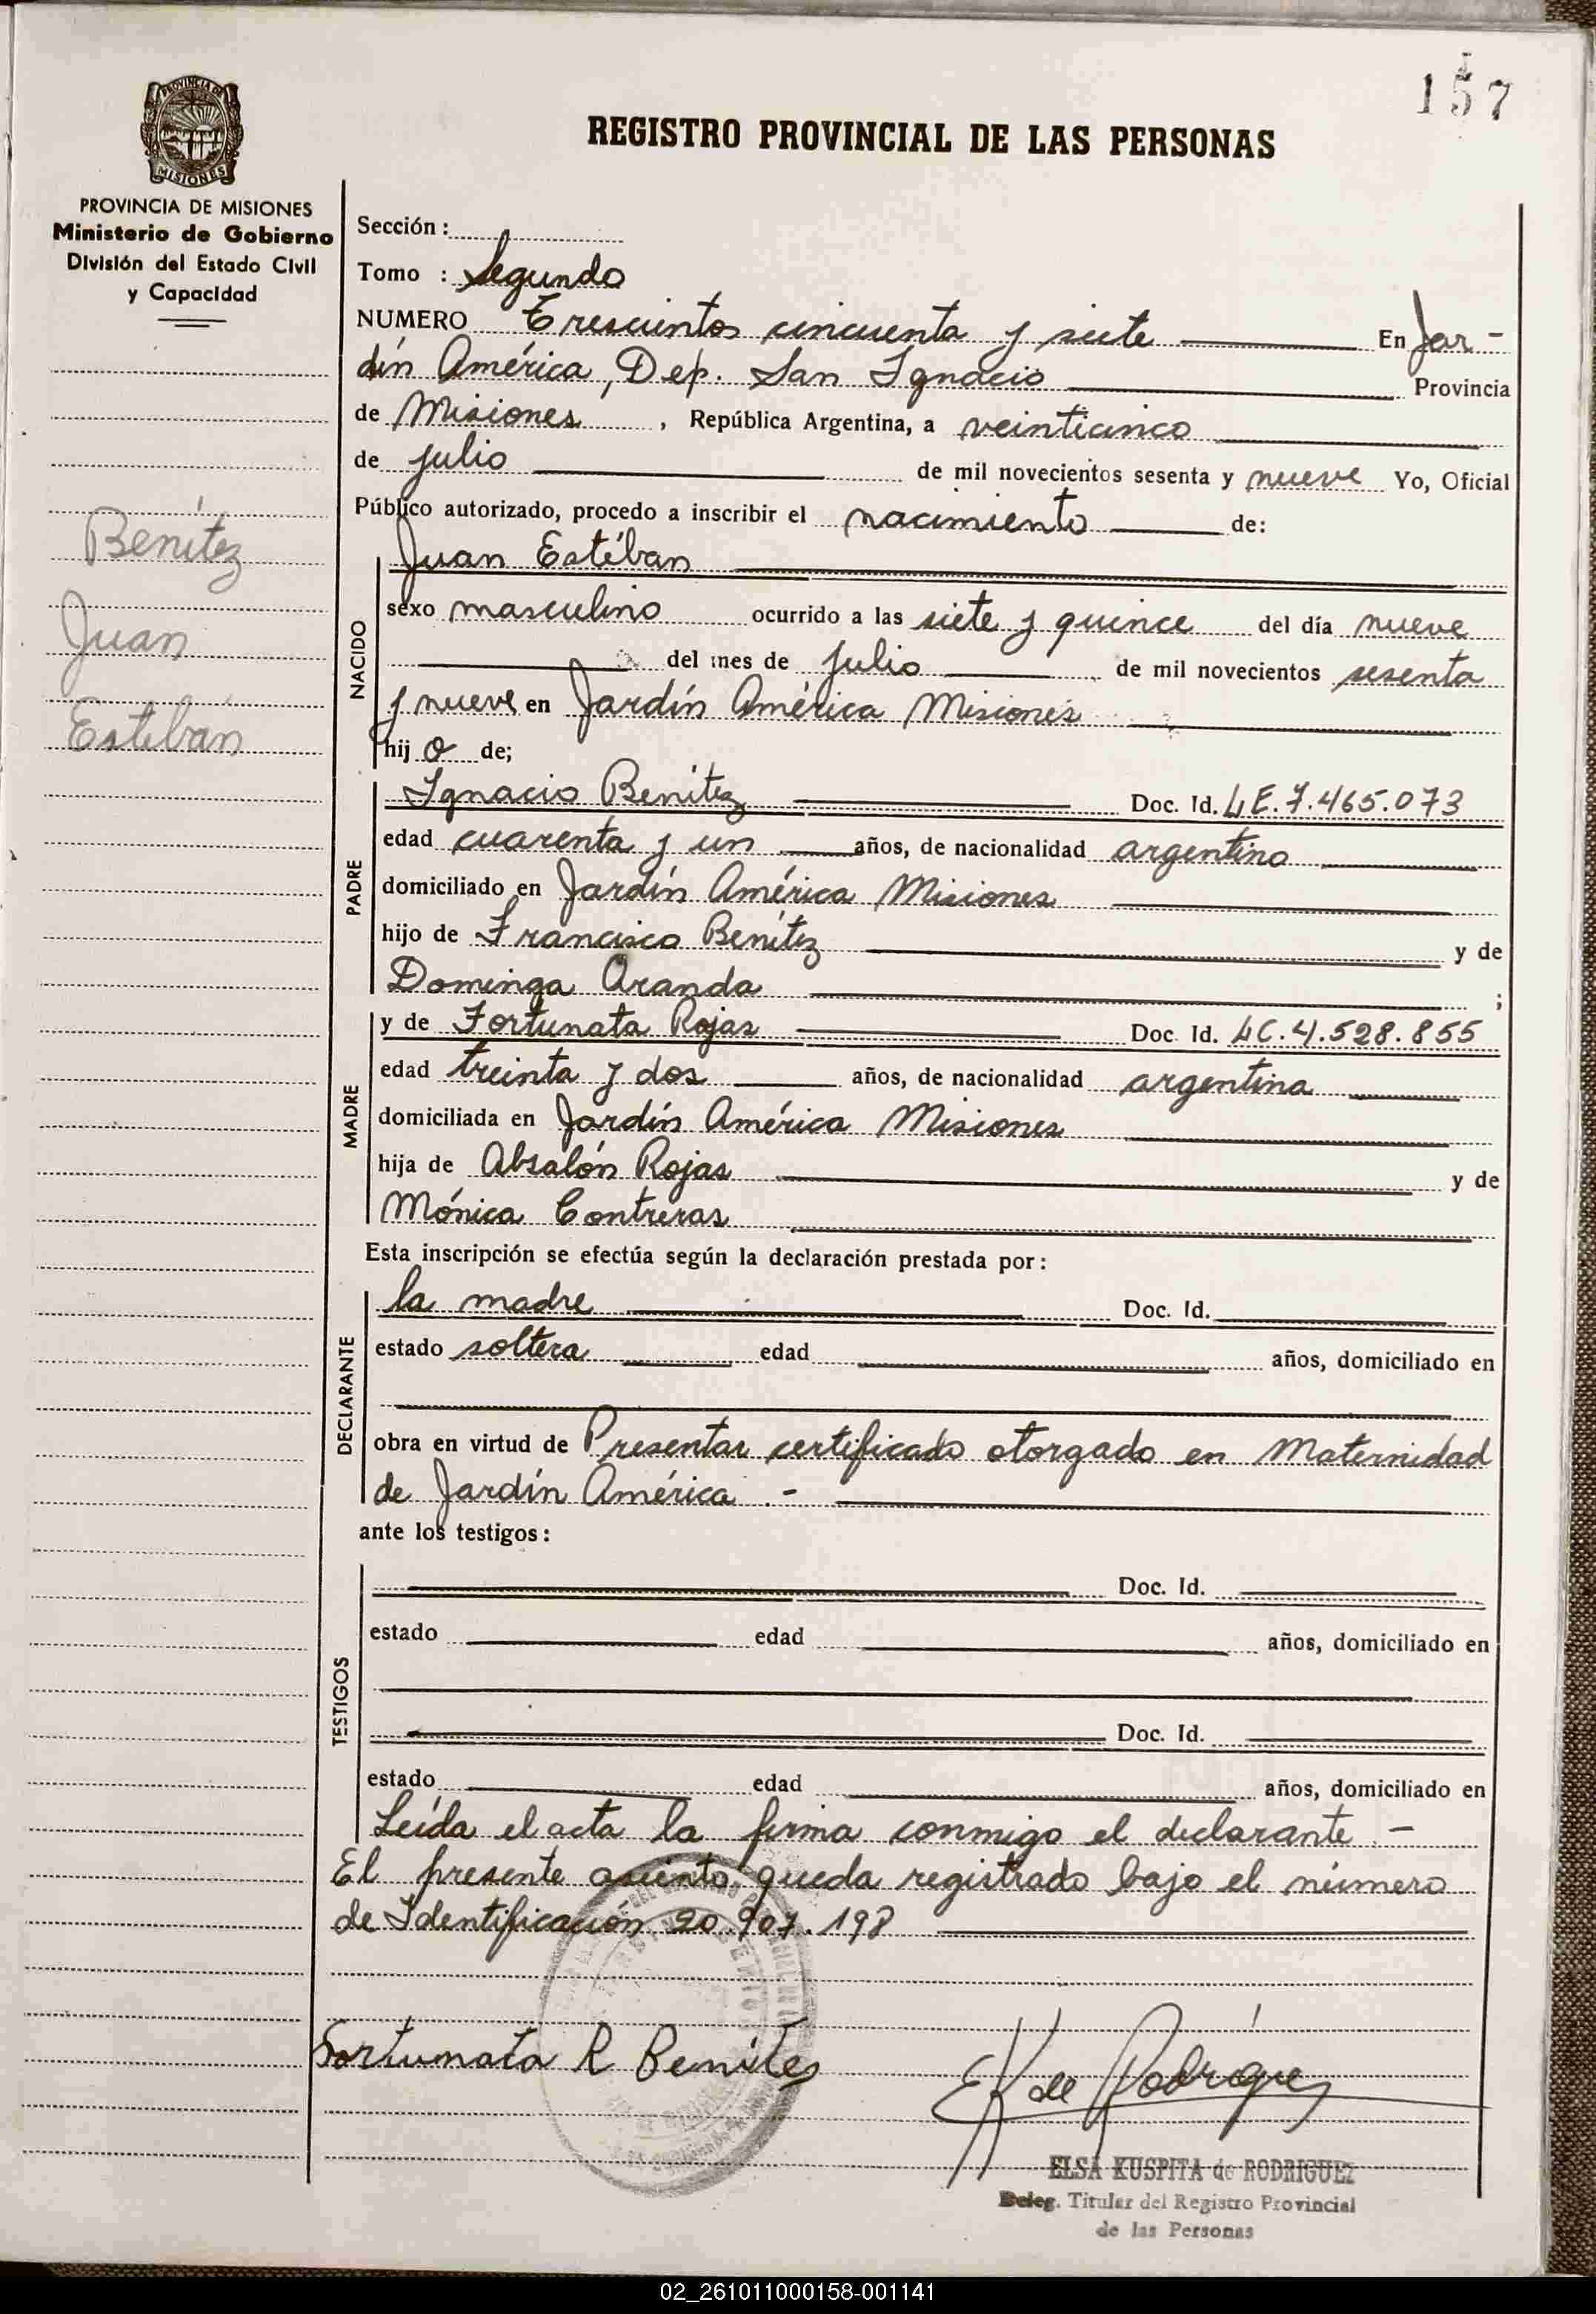 157
REGISTRO PROVINCIAL DE LAS PERSONAS
PROVINCIA DE
MISIONES
PROVINCIA DE MISIONES
Ministerio de Gobierno
División del Estado Civil
y Capacidad
Benítez
Juan
Estéban
Sección :
Tomo : Segundo
NUMERO Trescientos cincuenta y siete En Jar-
dín América, Dep. San Ignacio Provincia
de Misiones , República Argentina, a veinticinco
de julio de mil novecientos sesenta y nueve Yo, Oficial
Público autorizado, procedo a inscribir el nacimiento de:
NACIDO
Juan Estéban
sexo masculino ocurrido a las siete y quince del día nueve
del mes de julio de mil novecientos sesenta
y nueve en Jardín América Misiones
hijo de;
PADRE
Ignacio Benítez Doc. Id. LE.7.465.073
edad cuarenta y un años, de nacionalidad argentino
domiciliado en Jardín América Misiones
hijo de Francisco Benítez y de
Dominga Aranda ;
MADRE
y de Fortunata Rojas Doc. Id. LC.4.528.855
edad treinta y dos años, de nacionalidad argentina
domiciliada en Jardín América Misiones
hija de Absalón Rojas y de
Mónica Contreras
Esta inscripción se efectúa según la declaración prestada por :
DECLARANTE
la madre Doc. Id.
estado soltera edad años, domiciliado en
obra en virtud de Presentar certificado otorgado en Maternidad
de Jardín América .-
ante los testigos :
TESTIGOS
Doc. Id.
estado edad años, domiciliado en
Doc. Id.
estado edad años, domiciliado en
Leída el acta la firma conmigo el declarante .-
El presente asiento, queda registrado bajo el número
de Identificación 20.907.198
Fortunata R Benites
EK de Rodríguez
ELSA KUSPITA de RODRIGUEZ
Deleg. Titular del Registro Provincial
de las Personas
02_261011000158-001141